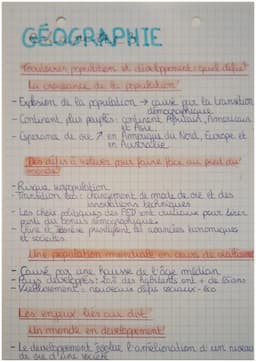 GÉOGRAPHIE
population et développement: quels défis?
La croissance de la population
- Explosion de la population → causé par la transition
démographique
- Continent plus peuplés: continent Africain, Américain
et Asie
- Espérance de vie ↗ en Amérique du Nord, Europe et
en Australie
Des défis à relever pour faire face au pied du
monde
- Risque surpopulation
- Transition changement de mode de vie et des
innovations techniques
- Les choix politiques des PED sont cruciaux pour tirer
parti du bonus démographique
avancées économiques
et sociales.
Une population mondiale en cours de
- Causé par une hausse de l'âge médian
- Pays développés: des habitants ont + de 65ans
- Vieillissement = nouveaux défis sociaux-éco
Les enjeux liés aux
Un monde en développement
- Le développement l'amélioration d'un niveau
de vie d'une société